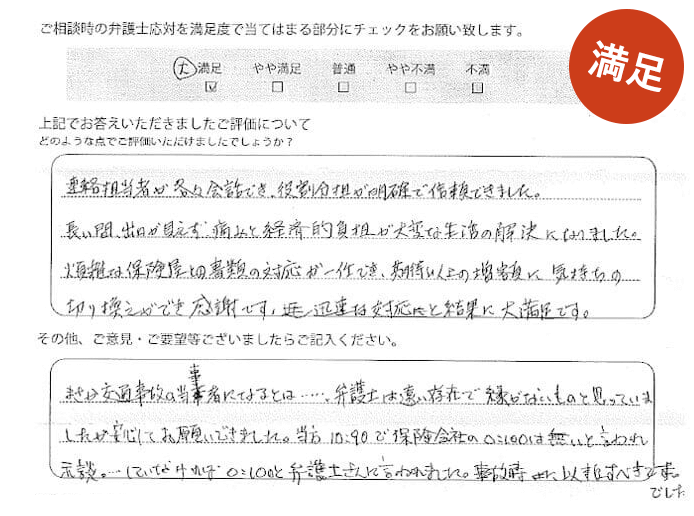 ご相談時の弁護士応対を満足度で当てはまる部分にチェックをお願い致します。
満足
大 満足 やや満足 普通 やや不満 不満
上記でお答えいただきましたご評価について
どのような点でご評価いただけましたでしょうか?
連絡担当者が各々会話でき、役割分担が明確で信頼できました。
長い間、出口が見えず痛みと経済的負担が大変な生活の解決になりました。
煩雑な保険屋と書類の対応が一任でき、期待以上の増額に気持ちの
切り換えができ感謝です。迅速な対応と結果に大満足です。
その他、ご意見・ご要望等ございましたらご記入ください。
まさか交通事故の当事者になるとは……、弁護士は遠い存在で縁がないものと思っていま
したが安心してお願いできました。当方10:90で保険会社の0:100は無いと言われ
示談。…していなければ0:100と弁護士さんに言われました。事故時に以来すべきです。
でした